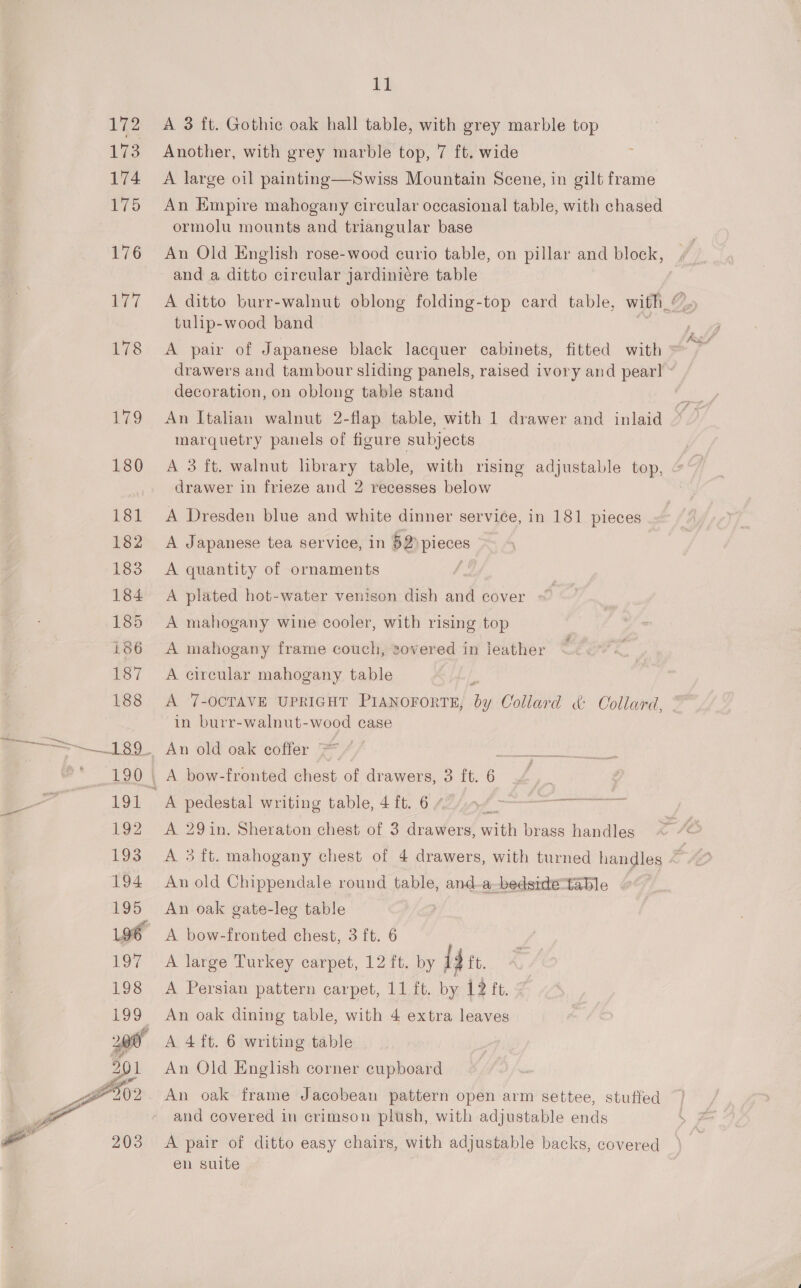 11
172 A 3 ft. Gothic oak hall table, with grey marble top
173 Another, with grey marble top, 7 ft. wide
174 A large oil painting—Swiss Mountain Scene, in gilt frame
175 An Empire mahogany circular occasional table, with chased
ormolu mounts and triangular base
176 An Old English rose-wood curio table, on pillar and block,
and a ditto circular jardinière table
177 A ditto burr-walnut oblong folding-top card table, with
tulip-wood band
178 A pair of Japanese black lacquer cabinets, fitted with
drawers and tambour sliding panels, raised ivory and pearl
decoration, on oblong table stand
179 An Italian walnut 2-flap table, with 1 drawer and inlaid
marquetry panels of figure subjects
180 A 3 ft. walnut library table, with rising adjustable top,
drawer in frieze and 2 recesses below
181 A Dresden blue and white dinner service, in 181 pieces
182 A Japanese tea service, in 52 pieces
183 A quantity of ornaments
184 A plated hot-water venison dish and cover
185 A mahogany wine cooler, with rising top
186 A mahogany frame couch, covered in leather
187 A circular mahogany table
188 A 7-OCTAVE UPRIGHT PIANOFORTE, by Collard & Collard,
in burr-walnut-wood case
189 An old oak coffer
190 A bow-fronted chest of drawers, 3 ft. 6
191 A pedestal writing table, 4 ft. 6
192 A 29 in. Sheraton chest of 3 drawers, with brass handles
193 A 3 ft. mahogany chest of 4 drawers, with turned handles
194 An old Chippendale round table, and a bedside table
195 An oak gate-leg table
196 A bow-fronted chest, 3 ft. 6
197 A large Turkey carpet, 12 ft. by ft.
198 A Persian pattern carpet, 11 ft. by 12 ft.
199 An oak dining table, with 4 extra leaves
200 A 4 ft. 6 writing table
201 An Old English corner cupboard
202 An oak frame Jacobean pattern open arm settee, stuffed
and covered in crimson plush, with adjustable ends
203 A pair of ditto easy chairs, with adjustable backs, covered
en suite